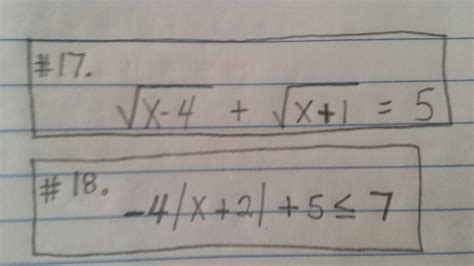 #17.
√(x-4) + √(x+1) = 5
#18.
-4|x+2|+5≤7